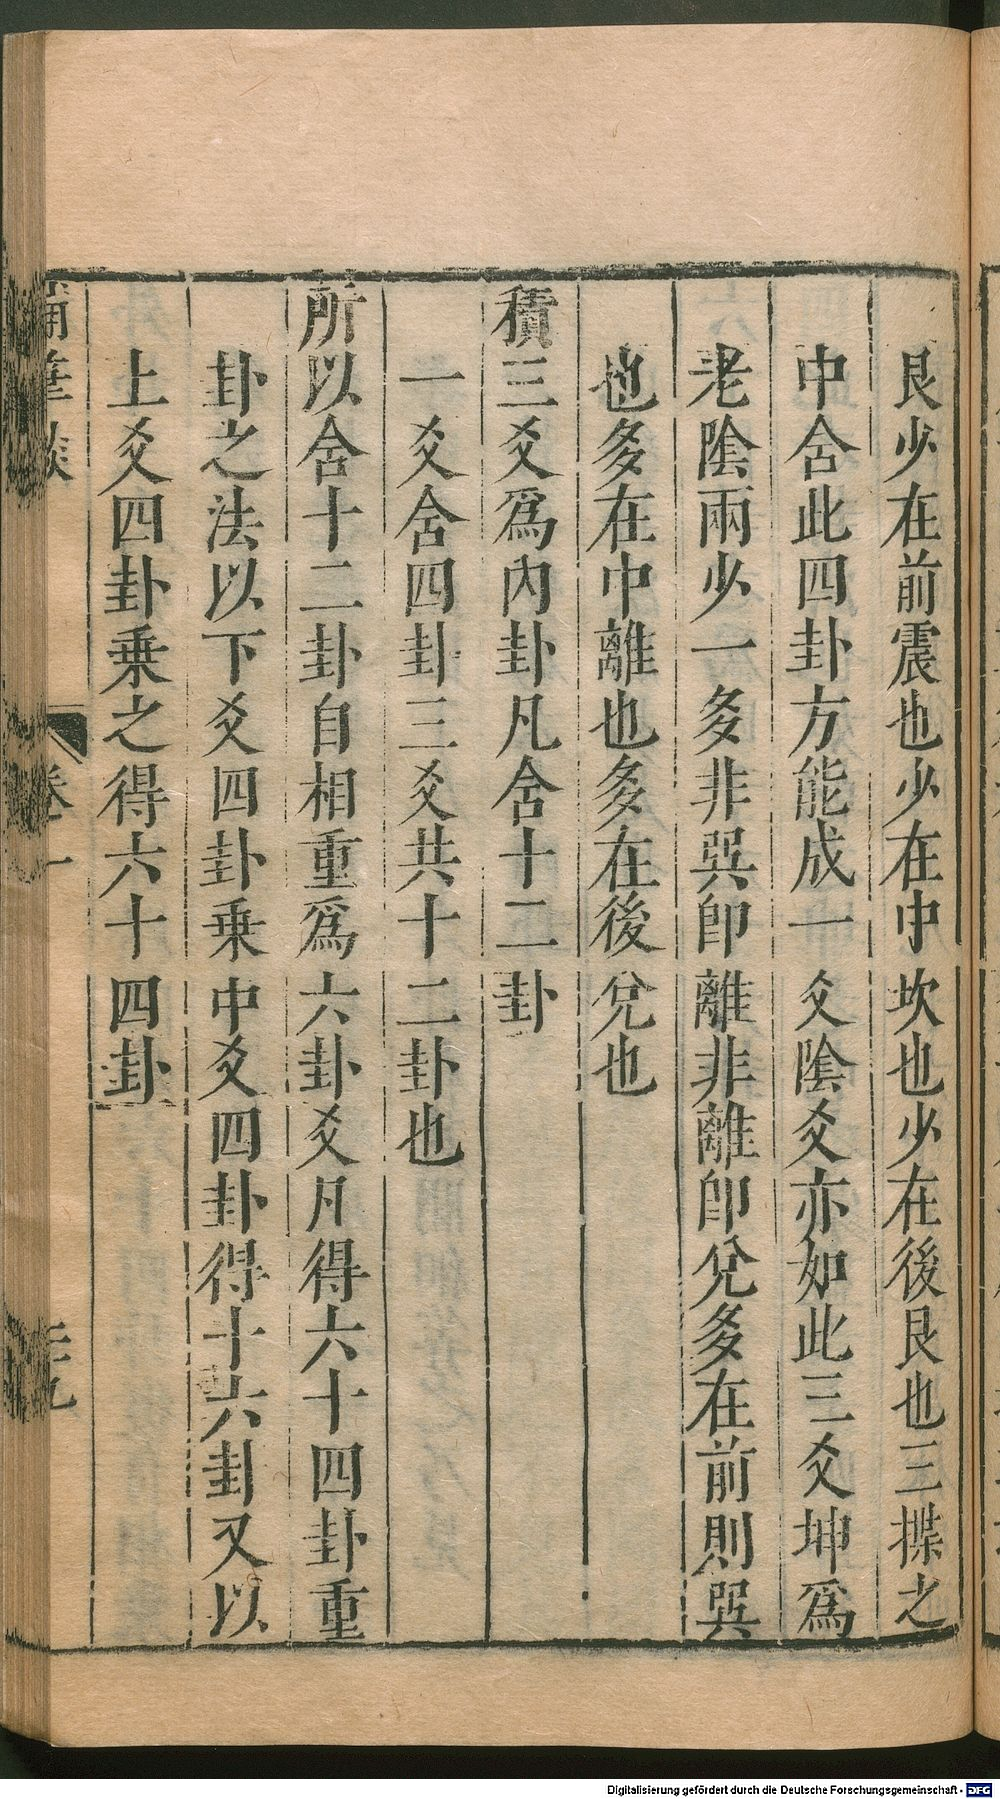 艮少在前震也少在中坎也少在後艮也三揲之
中含此四卦方能成一爻陰爻亦如此三爻坤爲
老陰兩少一多非巽即離非離即兌多在前則巽
也多在中離也多在後兌也
積三爻爲內卦凡含十二卦
一爻含四卦三爻共十二卦也
所以含十二卦自相重爲六卦爻凡得六十四卦重
卦之法以下爻四卦乗中爻四卦得十六卦又以
上爻四卦乗之得六十四卦
筆談
卷一
Digitalisierung gefördert durch die Deutsche Forschungsgemeinschaft - DFG